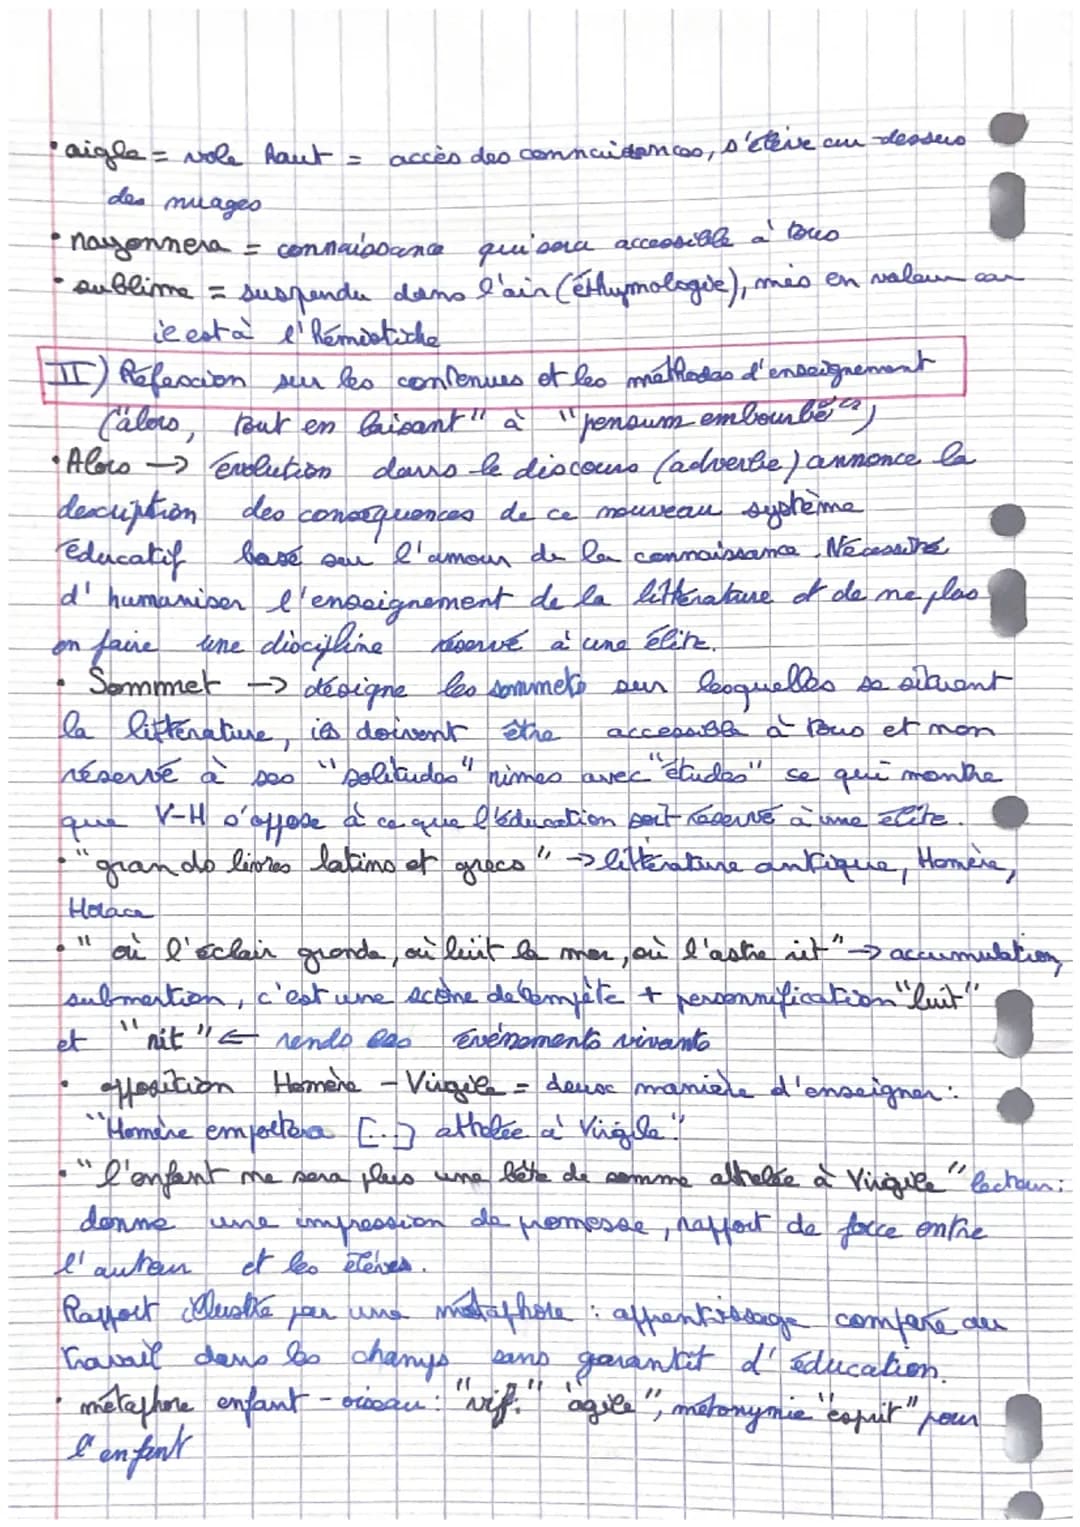 • aigle = vole haut = accès des connaissances, s'élève au-dessus
des nuages
• rayonnera = connaissance qui sera accessible à tous
• sublime = suspendu dans l'air (éthymologie), mis en valeur car
il est à l'hémistiche
II) Réflexcion sur les contenues et les méthodes d'enseignement
("alors, tout en laisant" à "pensum embourbé")
• Alors → évolution dans le discours (adverbe) annonce la
description des conséquences de ce nouveau système
éducatif basé sur l'amour de la connaissance. Nécessité
d'humaniser l'enseignement de la littérature et de ne plus
en faire une discipline réservé à une élite.
• Sommet → désigne les sommets sur lesquelles se situent
la littérature, ils doivent être accessible à tous et non
réservé à ses "solitudes" rimes avec "études" se qui montre
que V-H s'oppose à ce que l'éducation soit réservé à une élite.
• "grands livres latins et grecs" → littérature antique, Homère,
Horace
• "où l'éclair gronde, où luit la mer, où l'astre rit" → accumulation,
submertion, c'est une scène de tempête + personnification "luit"
et "rit" ← rends les événements vivants
• opposition Homère - Virgile = deux manière d'enseigner :
"Homère emportera [...] attelée à Virgile."
• "l'enfant ne sera plus une bête de somme attelée à Virgile" lecteur :
donne une impression de promesse, rapport de force entre
l'auteur et les élèves.
Rapport illustré par une métaphore : apprentissage comparé au
travail dans les champs sans garantit d'éducation.
• métaphore enfant - oiseau : "vif" "agile", métonymie "esprit" pour
l'enfant